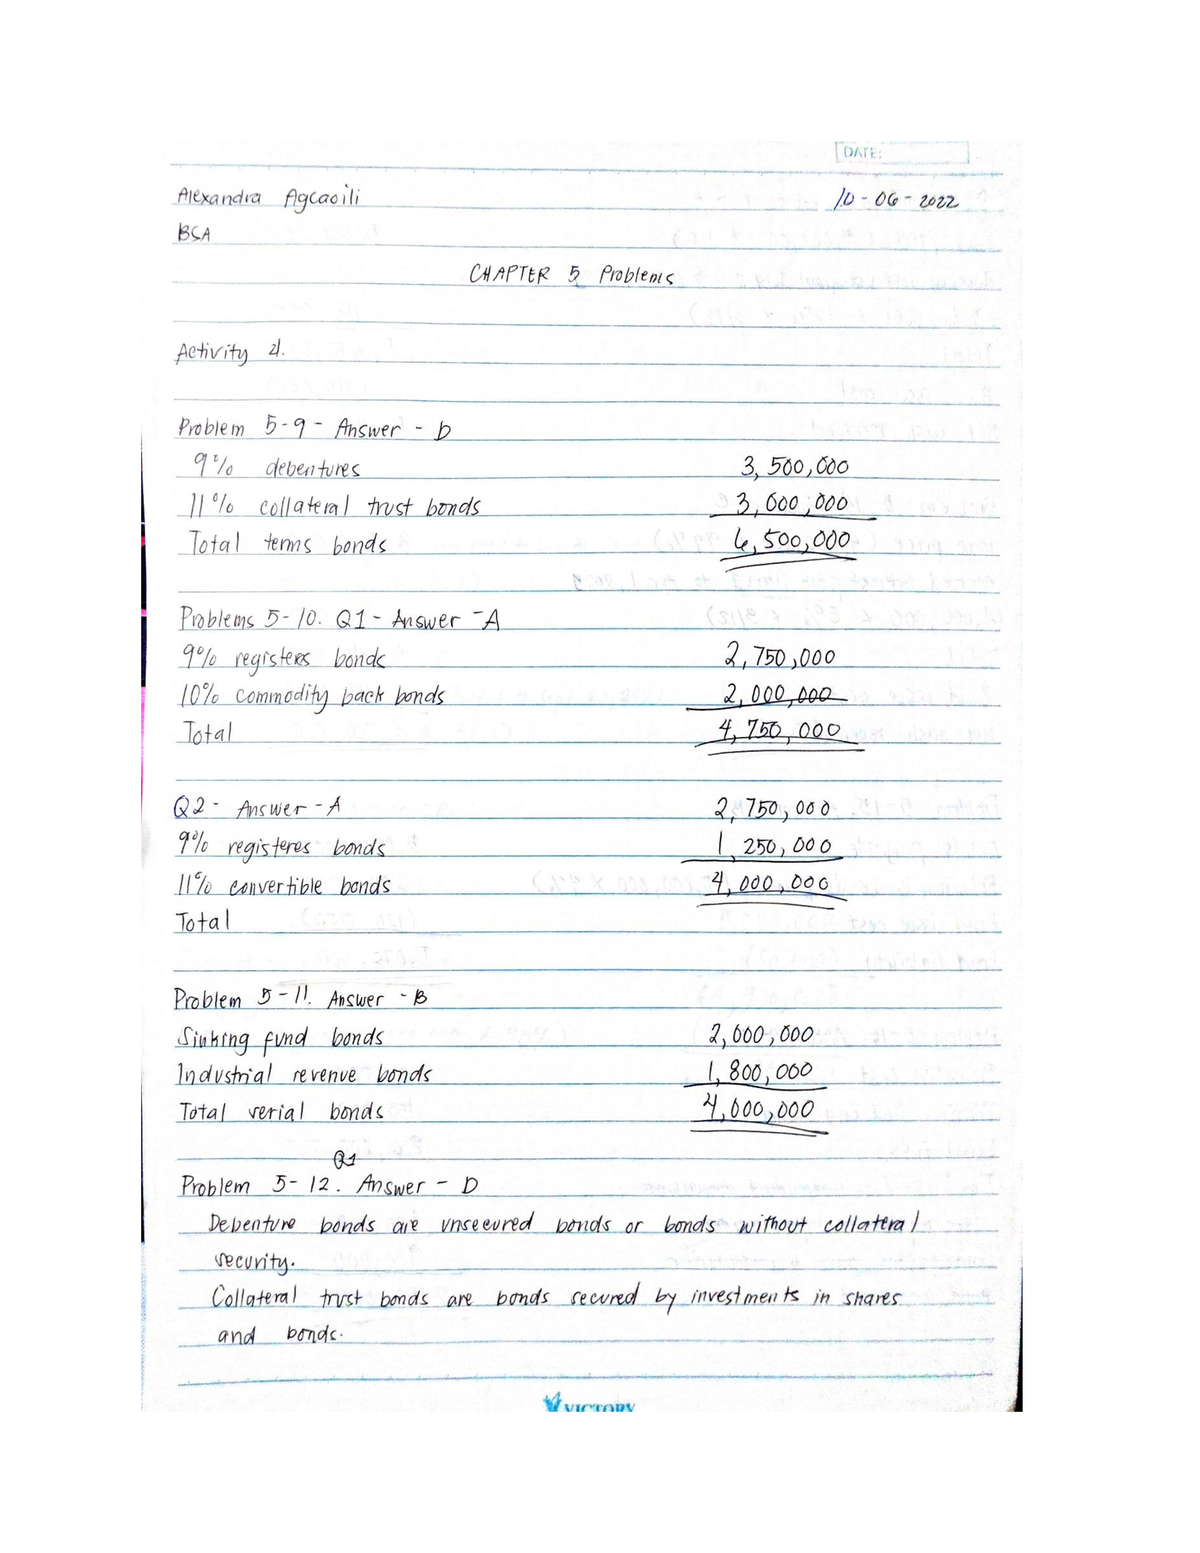 DATE:
Alexandra Agcaoili 10-06-2022
BSA
CHAPTER 5 Problems
Activity 21.
Problem 5-9 - Answer - D
9% debentures 3,500,000
11% collateral trust bonds 3,000,000
Total terms bonds 6,500,000
Problems 5-10. Q1 - Answer - A
9% registeres bonds 2,750,000
10% commodity back bonds 2,000,000
Total 4,750,000
Q2 - Answer - A 2,750,000
9% registeres bonds 1,250,000
11% convertible bonds 4,000,000
Total
Problem 5-11. Answer - B
Sinking fund bonds 2,000,000
Industrial revenue bonds 1,800,000
Total serial bonds 4,000,000
Q1
Problem 5-12. Answer - D
Debenture bonds are unsecured bonds or bonds without collateral
security.
Collateral trust bonds are bonds secured by investments in shares
and bonds.
VICTORY